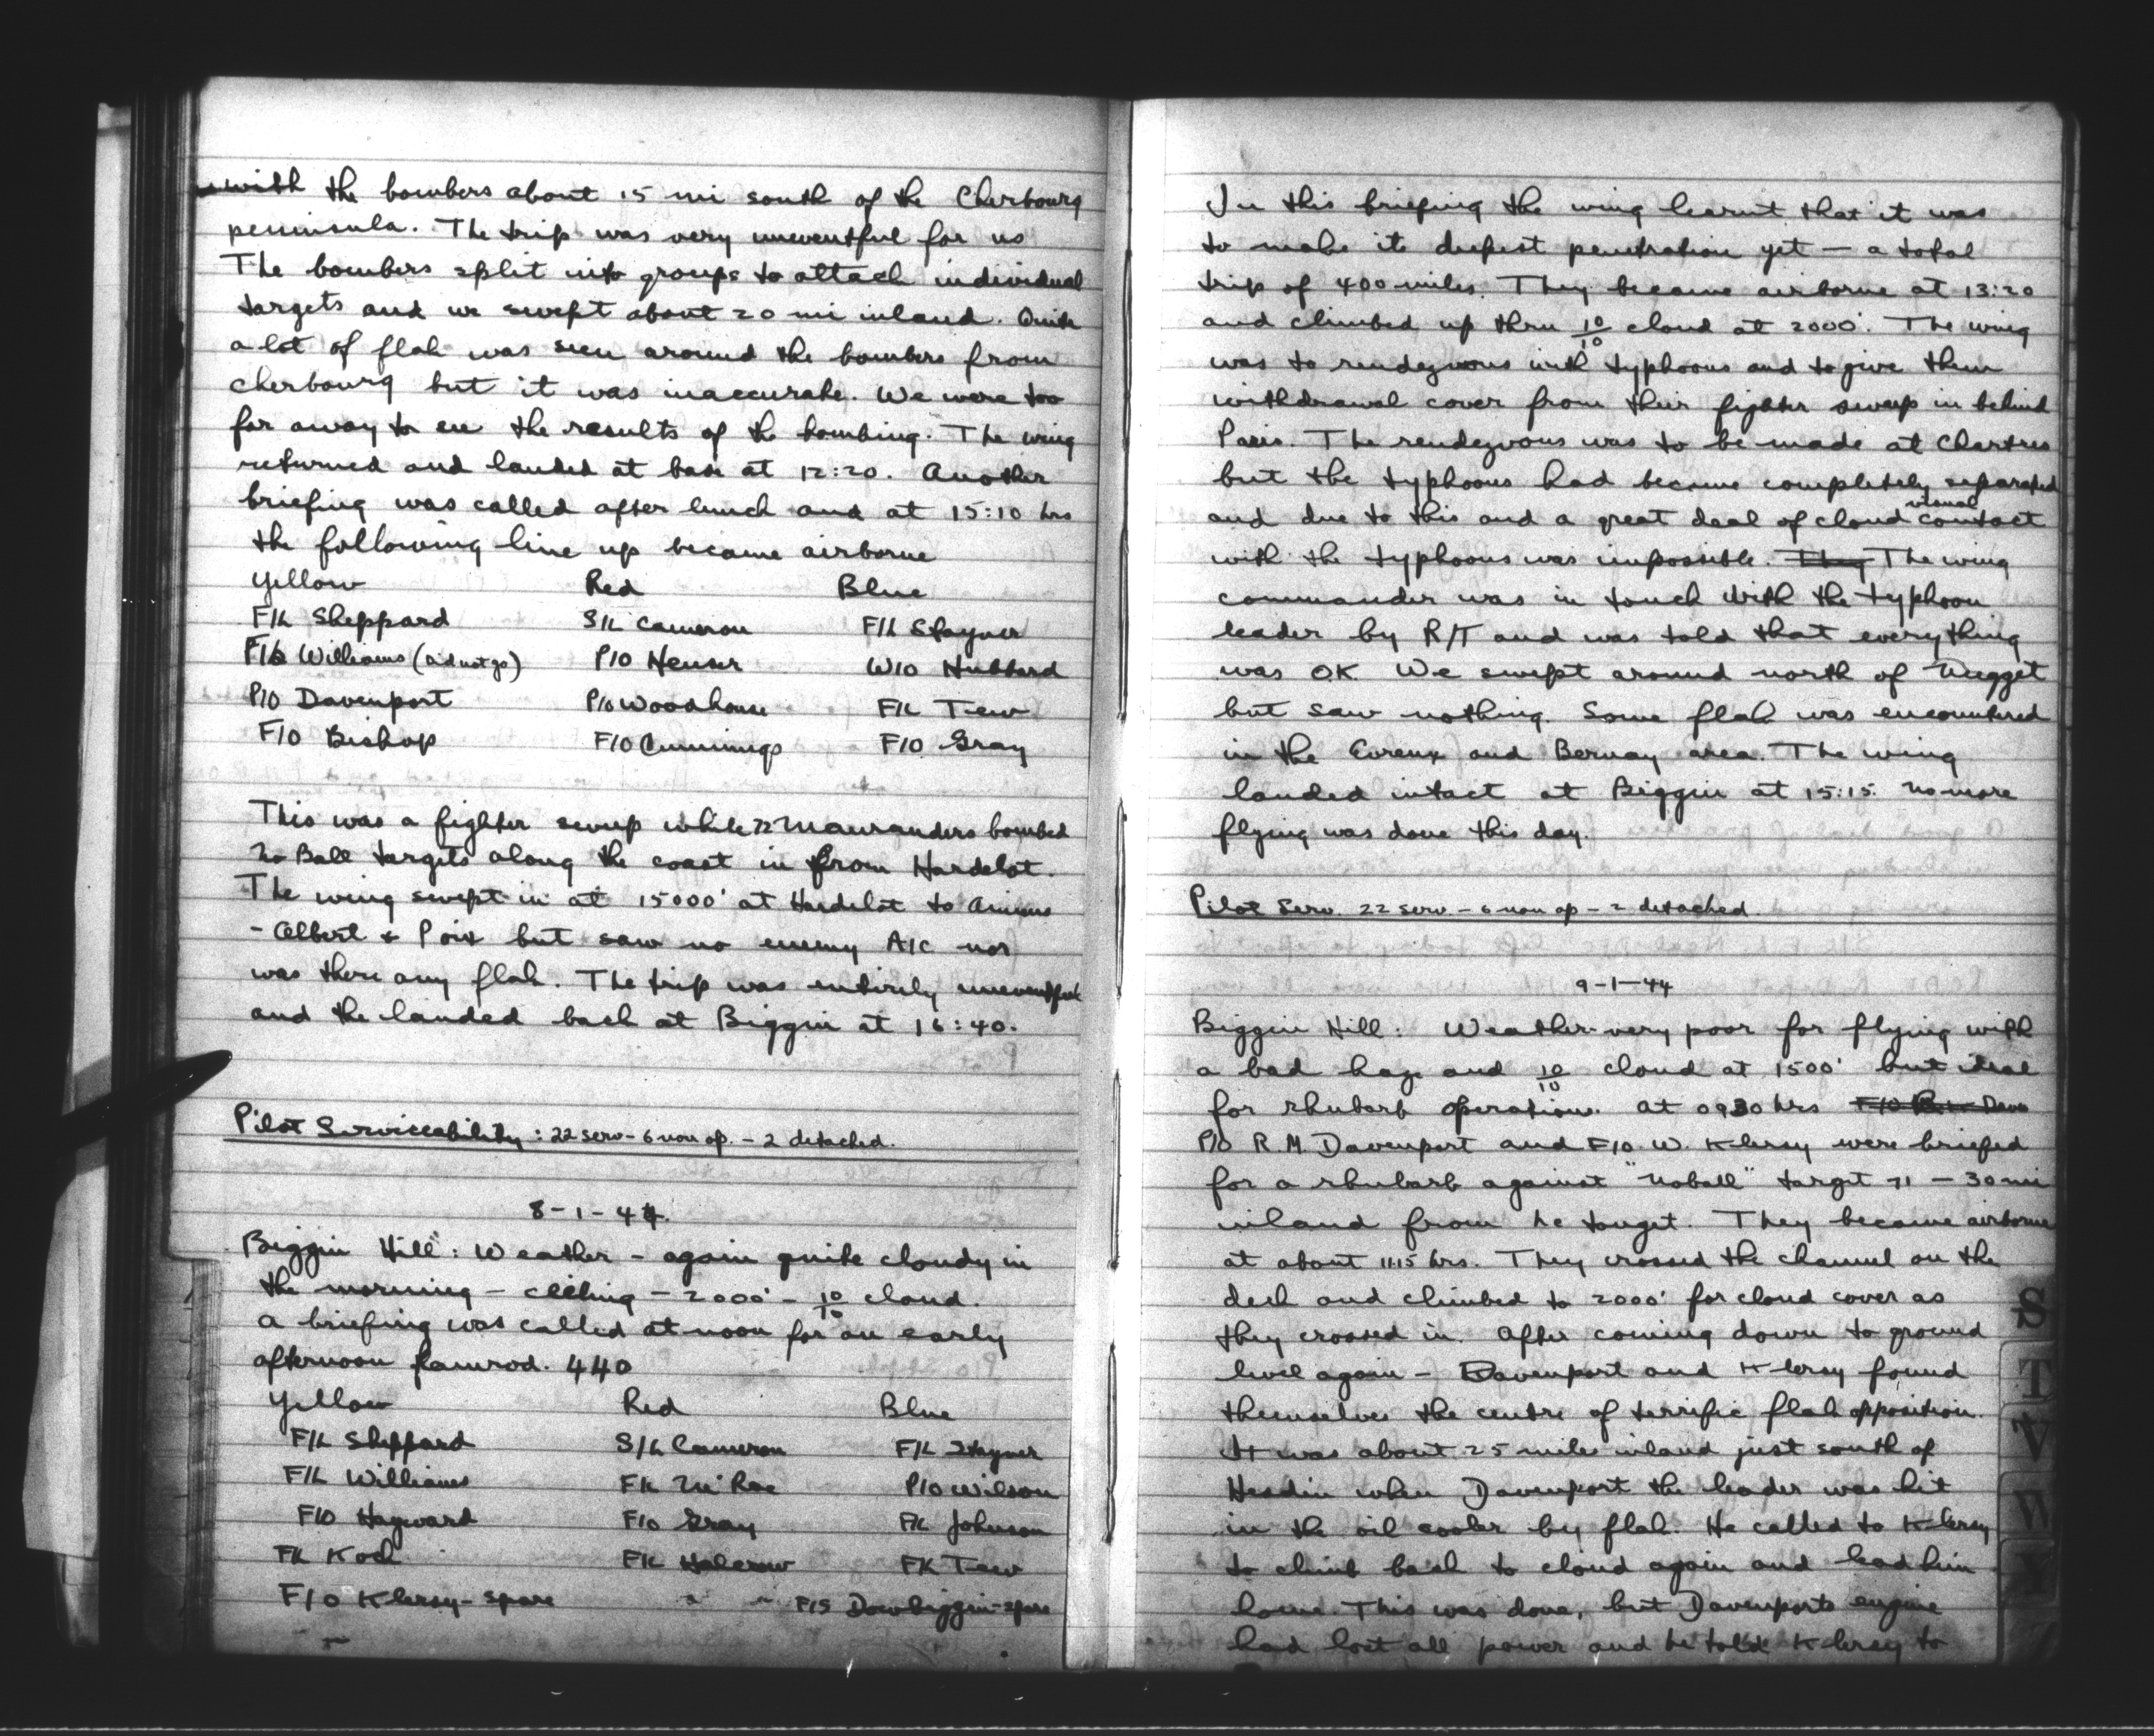 with the bombers about 15 mi south of the Cherbourg
peninsula. The trip was very uneventful for us
The bombers split into groups to attack individual
targets and we swept about 20 mi inland. Quite
a lot of flak was seen around the bombers from
Cherbourg but it was inaccurate. We were too
far away to see the results of the bombing. The wing
returned and landed at base at 12:20. Another
briefing was called after lunch and at 15:10 hrs
the following line up became airborne
Yellow Red Blue
F/L Sheppard S/L Cameron F/L Stayner
F/L Williams (did not go) P/O Heuser W/O Hubbard
P/O Davenport P/O Woodhouse F/L Tew
F/O Bishop F/O Cummings F/O Gray
This was a fighter sweep while 72 Mauranders bombed
No Ball targets along the coast in from Hardelot.
The wing swept in at 15000' at Hardelot to Amiens
- Albert & Poix but saw no enemy A/C nor
was there any flak. The trip was entirely uneventful
and the landed back at Biggin at 16:40.
Pilot Serviceability: 22 serv - 6 non op. - 2 detached.
8-1-44.
Biggin Hill: Weather - again quite cloudy in
the morning - ceiling - 2000' - 10/10 cloud.
A briefing was called at noon for an early
afternoon ramrod. 440
Yellow Red Blue
F/L Sheppard S/L Cameron F/L Stayner
F/L Williams F/L McRae P/O Wilson
F/O Hayward F/O Gray F/L Johnson
F/L Koch F/L Halcrow F/L Tew
F/O Klersy - spare F/S Dowbiggin - spare
In this briefing the wing learnt that it was
to make its deepest penetration yet — a total
trip of 400 miles. They became airborne at 13:20
and climbed up thru 10/10 cloud at 2000'. The wing
was to rendezvous with typhoons and to give them
withdrawal cover from their fighter sweep in behind
Paris. The rendezvous was to be made at Chartres
but the typhoons had become completely separated
and due to this and a great deal of cloud visual contact
with the typhoons was impossible. They The wing
commander was in touch with the typhoon
leader by R/T and was told that everything
was OK We swept around north of Nugget
but saw nothing. Some flak was encountered
in the Evreux and Bernay area. The wing
landed intact at Biggin at 15:15. No more
flying was done this day.
Pilot Serv. 22 serv - 6 non op - 2 detached.
9-1-44
Biggin Hill: Weather very poor for flying with
a bad haze and 10/10 cloud at 1500' but ideal
for rhubarb operations. At 0930 hrs
P/O R.M. Davenport and F/O. W. Klersy were briefed
for a rhubarb against "Noball" target 71 - 30 mi
inland from he touget. They became airborne
at about 1115 hrs. They crossed the channel on the
deck and climbed to 2000' for cloud cover as
they crossed in. After coming down to ground
level again - Davenport and Klersy found
themselves the centre of terrific flak opposition.
It was about 25 miles inland just south of
Hesdin when Davenport the leader was hit
in the oil cooler by flak. He called to Klersy
to climb back to cloud again and lead him
home. This was done, but Davenports engine
had lost all power and he told Klersy to
S
T
V
W
Y
Z